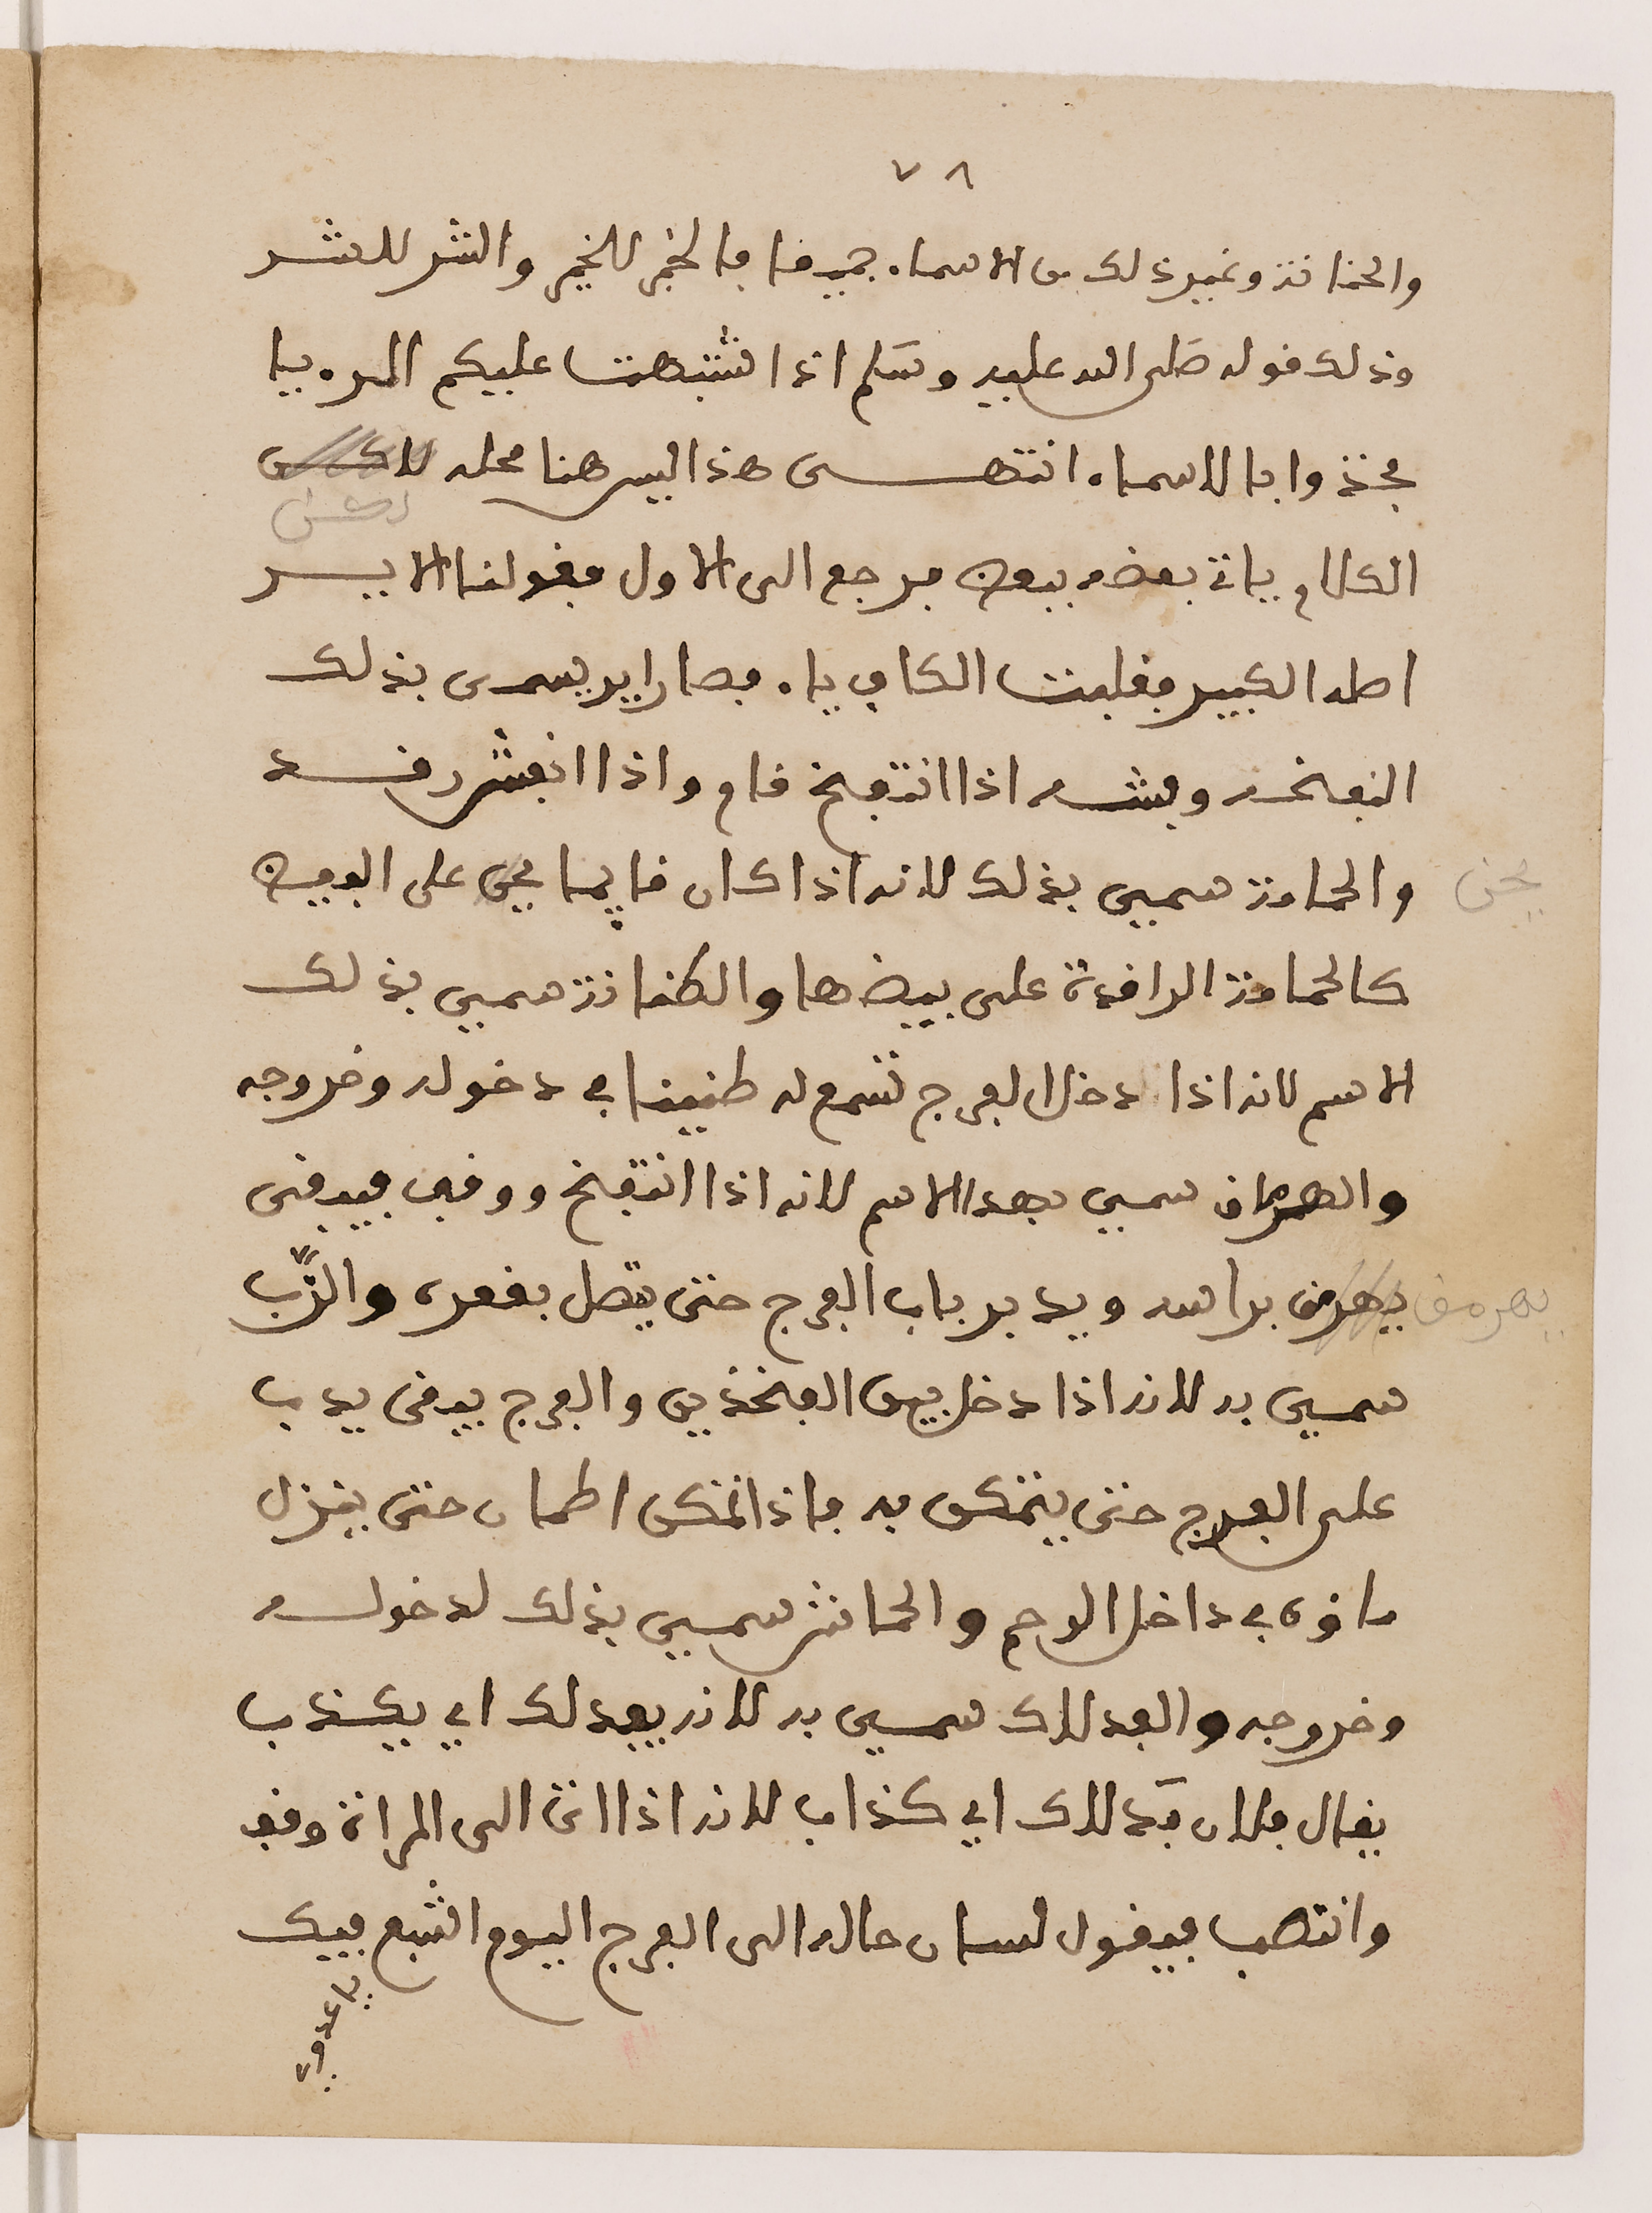 ٧٨
والخنانة وغير ذلك من الاسماء جميعا فالخير للخير والشر للشر
وذلك قوله صلى الله عليه وسلم اذا تشبهت عليكم المرءيا
فخذوا بالاسماء انتهى هذا ليس هنا محله لاكن
لكن
الكلام ياتي بعضه ببعض فيرجع الى الاول فقولنا الاير
اصله الكير فقلبت الكاف ياء فصار اير يسمى بذلك
لنفخه وفشه اذا انتفخ قام واذا انفش رقد
والحمامة سمي بذلك لانه اذا كان قايما يجي على البيض
يحن
كالحمامة الراقدة على بيضها والطنانة سمي بذلك
الاسم لانه اذا دخل الفرج تسمع له طنينا في دخوله وخروجه
والهرماق سمي بهذا الاسم لانه اذا انتفخ ووقف فيبقى
يهرمق براسه ويدير باب الفرج حتى يتصل بقعره والزب
يهرمق
سمي به لانه اذا دخل بين الفخذين والفرج يبقى يدب
على الفرج حتى يتمكن به فاذا تمكن اطمان حتى ينزل
ماؤه في داخل الرحم والحماش سمي بذلك لدخوله
وخروجه والفدلاك سمي به لانه يفدلك اي يكذب
يقال فلان فدلاك اي كذاب لانه اذا اتى الى المراة وقف
وانتصب فيقول لسان حاله الى الفرج اليوم اشبع فيك
يا عدوي